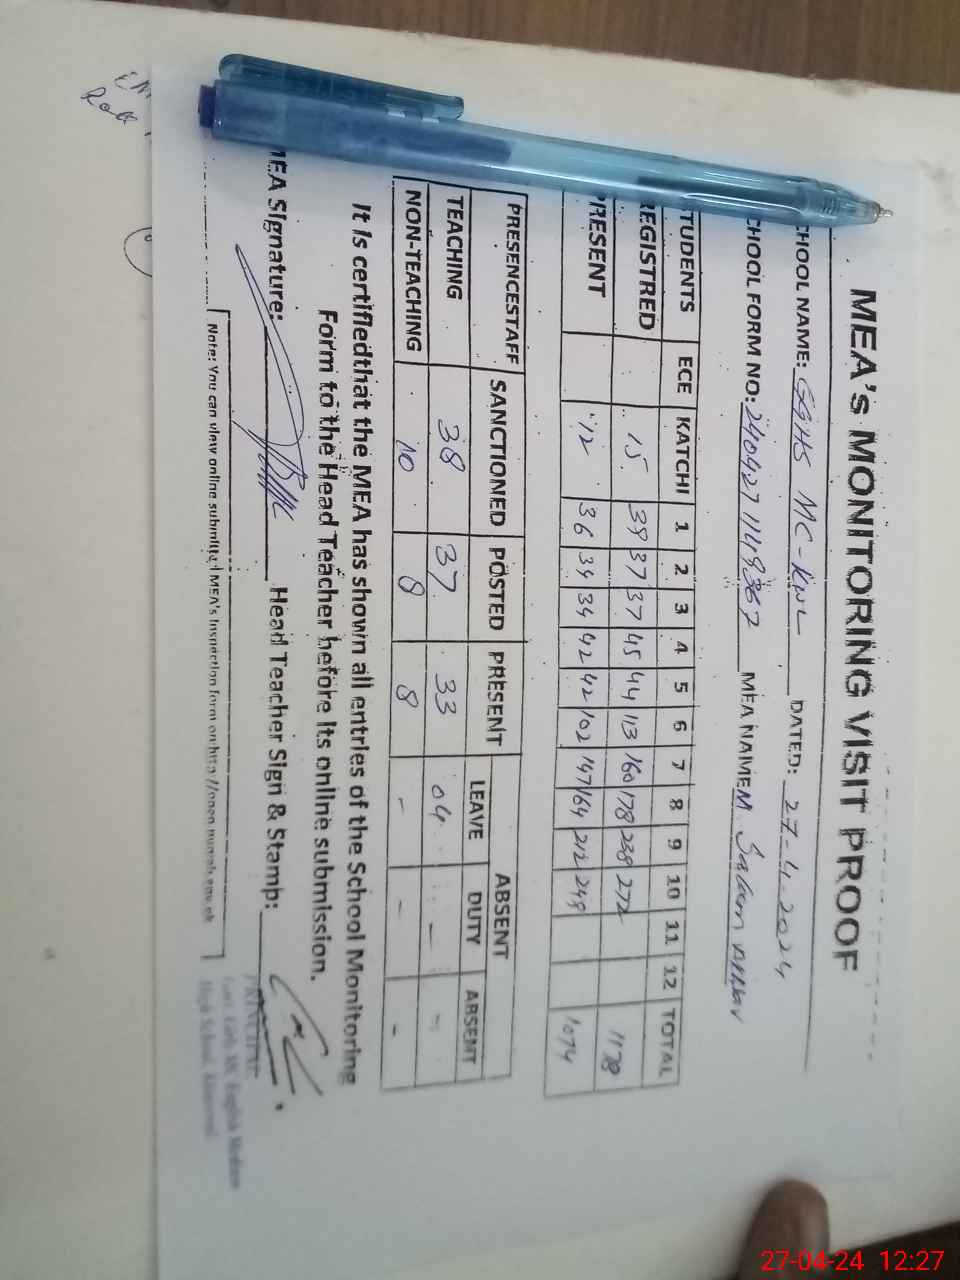 MEA's MONITORING VISIT PROOF
CHOOL NAME: GGHS MC-KWL DATED: 27-4-2024
CHOOL FORM NO: MEA NAME M.
TUDENTS ECE KATCHI 1 2 3 4 5 6 7 8 9 10 11 12 TOTAL
REGISTRED 15 39 37 37 45 44 113 160 178 238 272 1178
PRESENT 12 36 34 34 42 42 102 147 164 212 248 1074
PRESENCESTAFF SANCTIONED POSTED PRESENT ABSENT
LEAVE DUTY ABSENT
TEACHING 38 37 33 04 - -
NON-TEACHING 10 8 8 - - -
It is certifiedthat the MEA has shown all entries of the School Monitoring
Form to the Head Teacher before its online submission.
MEA Signature: Head Teacher Sign & Stamp:
PRINCIPAL
Govt. Girls MC English Medium
High School, Khanewal
Note: You can view online submitted MEA's Inspection form on http://open.punjab.gov.pk
27-04-24 12:27